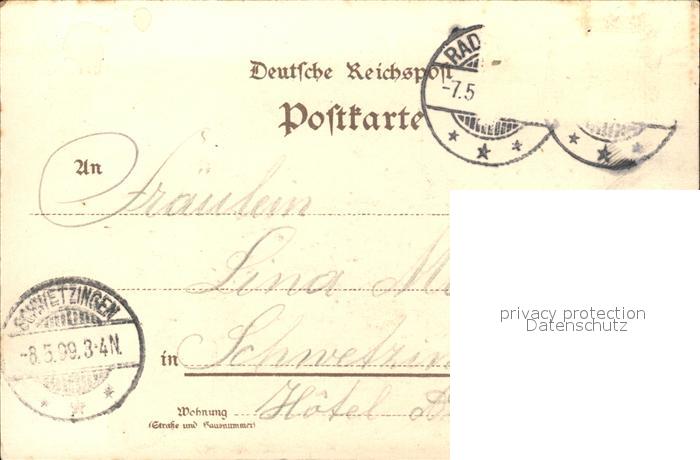 Deutsche Reichspost
Postkarte
RAD
-7.5
An Fräulein
Lina M
SCHWETZINGEN
-8.5.99.3-4N.
in Schwetzin
Wohnung Hôtel
(Straße und Hausnummer)
privacy protection
Datenschutz